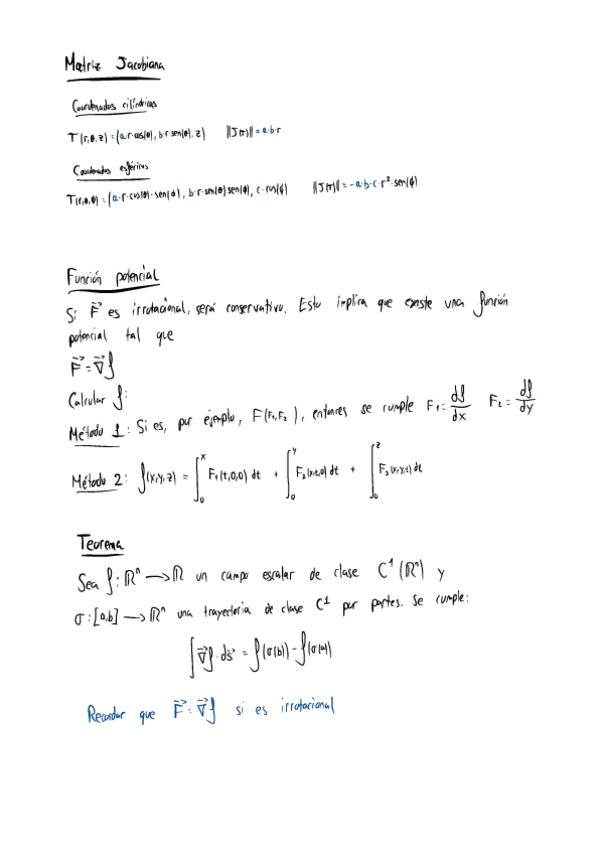 Matriz Jacobiana
Coordenadas cilíndricas
T(r,θ,z)=(a·r·cos(θ), b·r·sen(θ), z) ||J(T)||=a·b·r
Coordenadas esféricas
T(r,θ,ϕ)=(a·r·cos(θ)·sen(ϕ), b·r·sen(θ)sen(ϕ), c·r·cos(ϕ) ||J(T)||=-a·b·c·r²·sen(ϕ)
Función potencial
Si F⃗ es irrotacional, será conservativo. Esto implica que existe una función
potencial tal que
F⃗=∇⃗f
Calcular f:
Método 1: Si es, por ejemplo, F(F₁,F₂), entonces se cumple F₁=df/dx F₂=df/dy
Método 2: f(x,y,z) = ∫₀ˣ F₁(t,0,0) dt + ∫₀ʸ F₂(x,t,0) dt + ∫₀ᶻ F₃(x,y,t) dt
Teorema
Sea f:ℝⁿ→ℝ un campo escalar de clase C¹(ℝⁿ) y
σ:[a,b]→ℝⁿ una trayectoria de clase C¹ por partes. Se cumple:
∫∇⃗f·ds⃗ = f(σ(b))-f(σ(a))
Recordar que F⃗=∇⃗f si es irrotacional